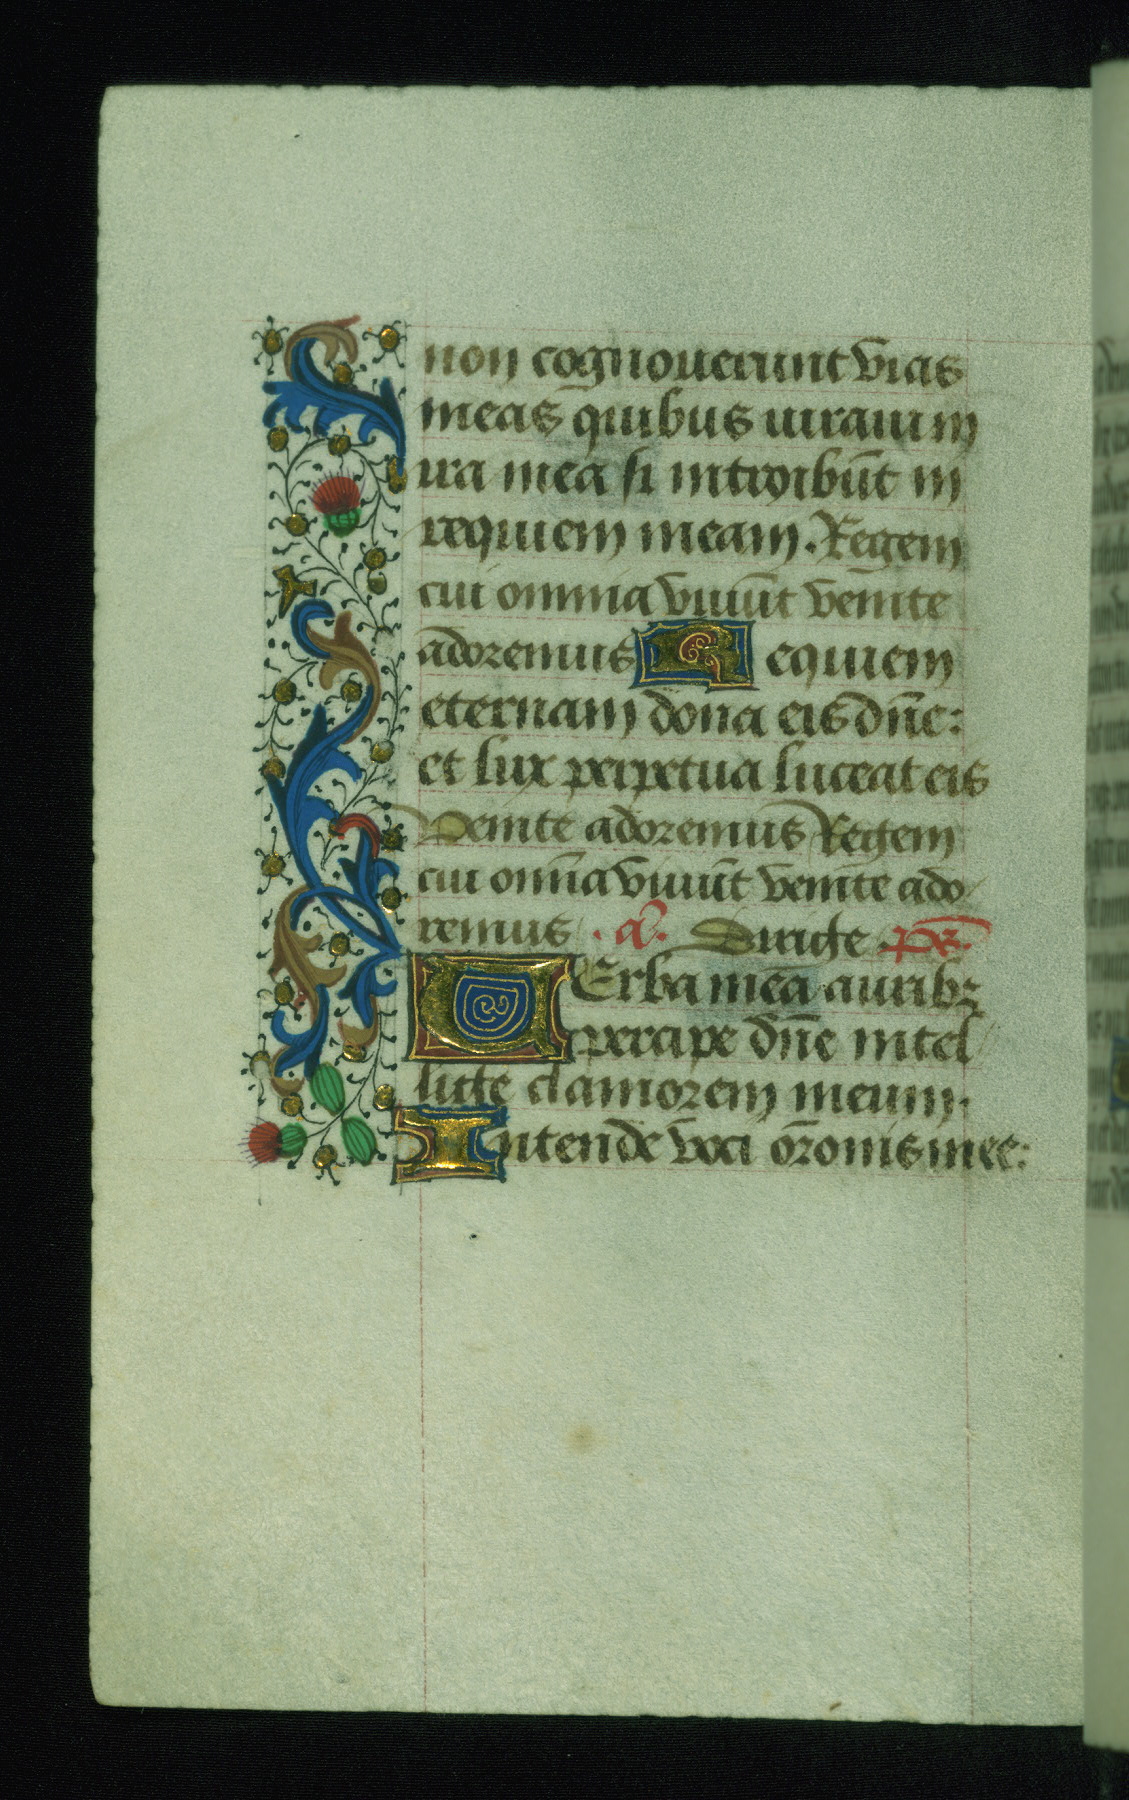 non cognouerunt vias
meas quibus iuraui in
ira mea si introibūt in
requiem meam. Regem
cui omnia viuūt venite
adoremus Requiem
eternam dona eis dn̄e:
et lux perpetua luceat eis
Venite adoremus Regem
cui om̄ia viuūt venite ado
remus. a᷒. Dirige. ps̄.
VErba mea auribꝰ
percipe dn̄e intel
lige clamorem meum.
Intende voci or̄onis mee: